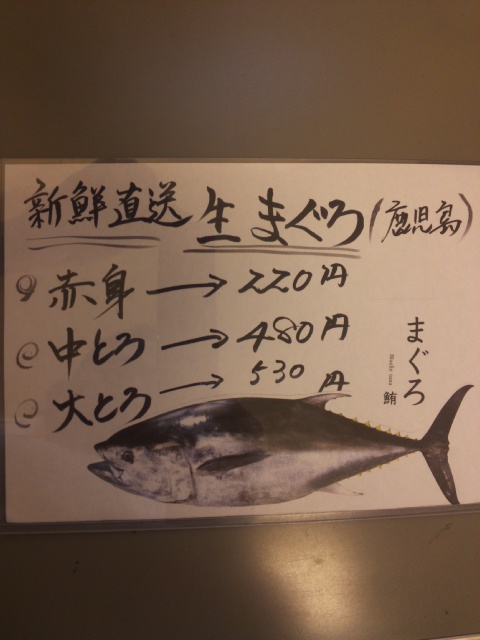 新鮮直送 生まぐろ(鹿児島)
赤身→220円
中とろ→480円
大とろ→530円
まぐろ
鮪